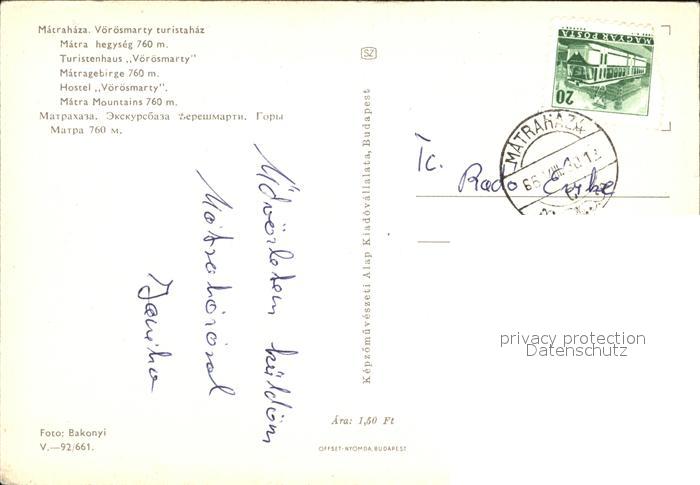 Mátraháza. Vörösmarty turistaház
Mátra hegység 760 m.
Turistenhaus „Vörösmarty"
Mátragebirge 760 m.
Hostel „Vörösmarty"
Mátra Mountains 760 m.
Матрахаза. Экскурсбаза Верешмарти. Горы
Матра 760 м.
SZ
MAGYAR POSTA
20
MÁTRAHÁZA
Ic. Rado
privacy protection
Datenschutz
Üdvözletem küldöm
Mátraházáról
Képzőművészeti Alap Kiadóvállalata, Budapest
Ára: 1,50 Ft
Foto: Bakonyi
V.—92/661.
OFFSET-NYOMDA, BUDAPEST